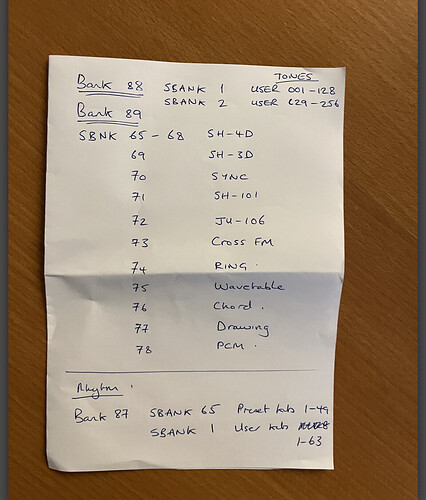 TONES
Bank 88 SBANK 1 USER 001-128
SBANK 2 USER 129-256
Bank 89
SBNK 65-68 SH-4D
69 SH-3D
70 SYNC
71 SH-101
72 JU-106
73 Cross FM
74 RING.
75 Wavetable
76 Chord.
77 Drawing
78 PCM.
Rhythm.
Bank 87 SBANK 65 Preset kab 1-49
SBANK 1 User kab
1-63